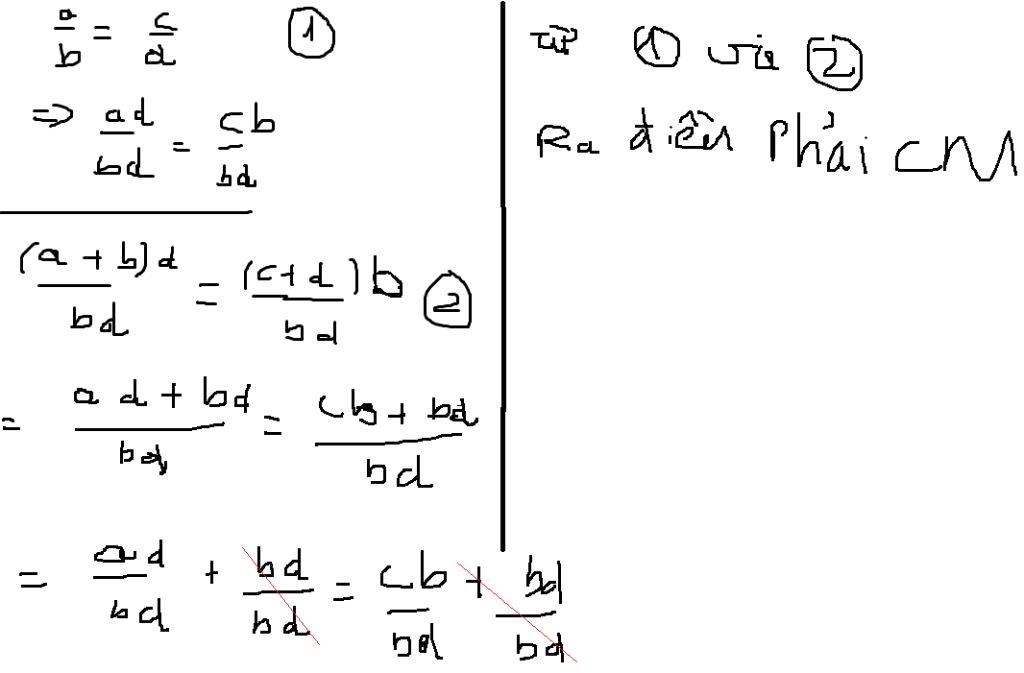 a/b = c/d ①
=> ad/bd = cb/bd
(a + b)d/bd = (c+d)b/bd ②
= ad + bd/bd = cb + bd/bd
= ad/bd + bd/bd = cb/bd + bd/bd
Từ ① và ②
Ra điều phải CM